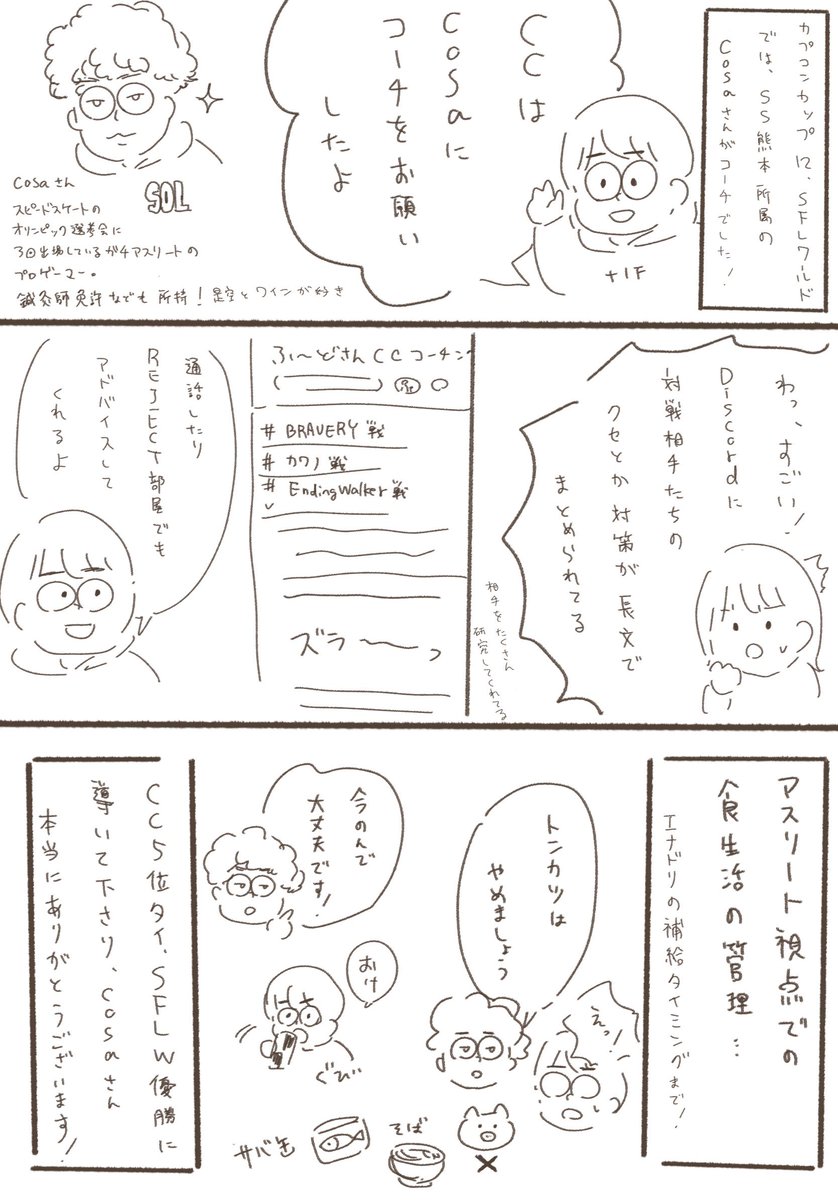 カプコンカップ12、SFLワールド
では、SS熊本所属の
Cosaさんがコーチでした!
CCは
Cosaに
コーチをお願い
したよ
Cosaさん
SOL
スピードスケートの
オリンピック選考会に
3回出場しているガチアスリートの
プロゲーマー。
鍼灸師免許なども所持!星空とワインが好き
わっ、すごい!
Discordに
対戦相手たちの
クセとか対策が長文で
まとめられてる
相手をたくさん
研究してくれてる
ふ〜どさんCCコーチング
# BRAVERY戦
# カワノ戦
# EndingWalker戦
ズラ〜〜っ
通話したり
REJECT部屋でも
アドバイスして
くれるよ
アスリート視点での
食生活の管理…
エナドリの補給タイミングまで!
えっ!
トンカツは
やめましょう
そば
サバ缶
今のんで
大丈夫です!
おけ
ぐび
CC5位タイ、SFLW優勝に
導いて下さり、Cosaさん
本当にありがとうございます!